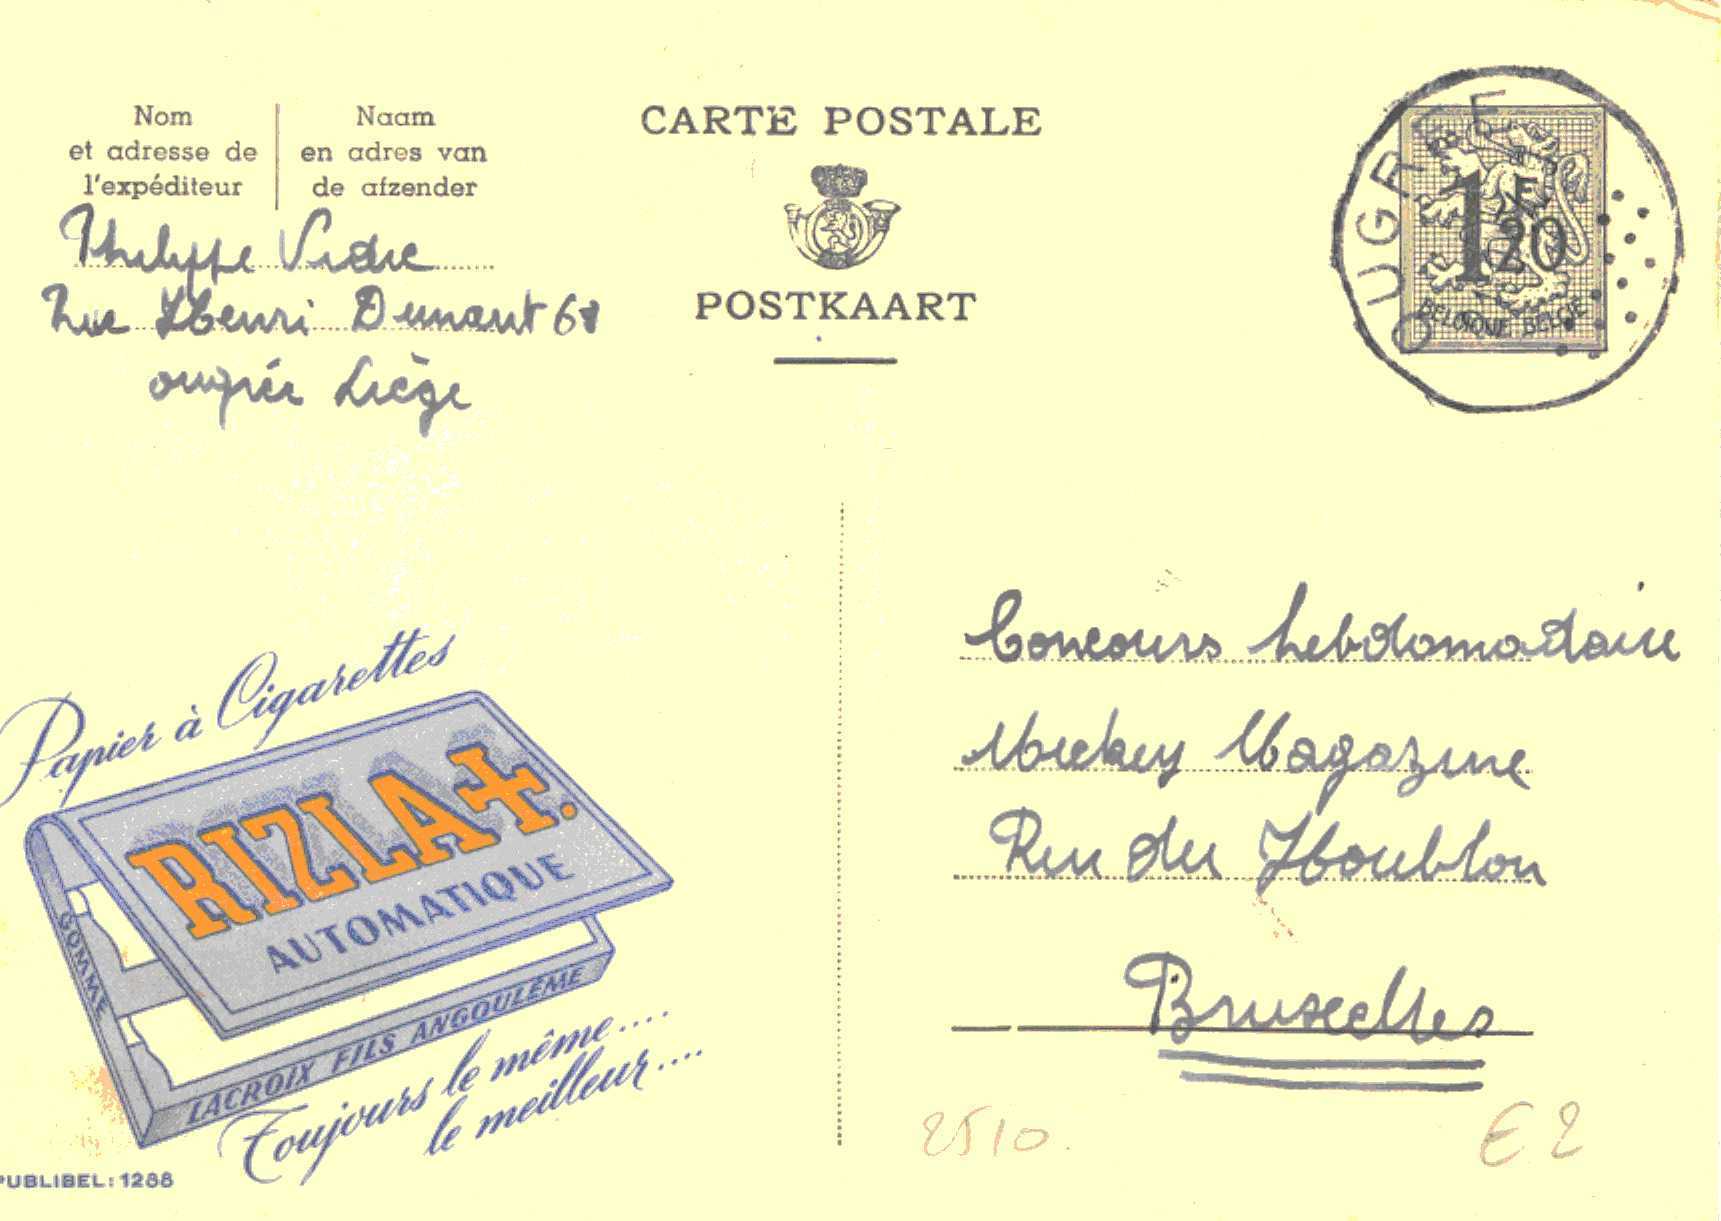 Nom
et adresse de
l'expéditeur
Naam
en adres van
de afzender
Philippe Vidic
Rue Henri Dunant 67
ougrée Liège
CARTE POSTALE
POSTKAART
OUGRÉE
1F20
BELGIQUE BELGIË
Papier à Cigarettes
RIZLA+.
AUTOMATIQUE
GOMME
LACROIX FILS ANGOULÊME
Toujours le même....
le meilleur...
PUBLIBEL: 1288
Concours hebdomadaire
Mickey Magazine
Rue du Houblon
Bruxelles
2510.
€ 2